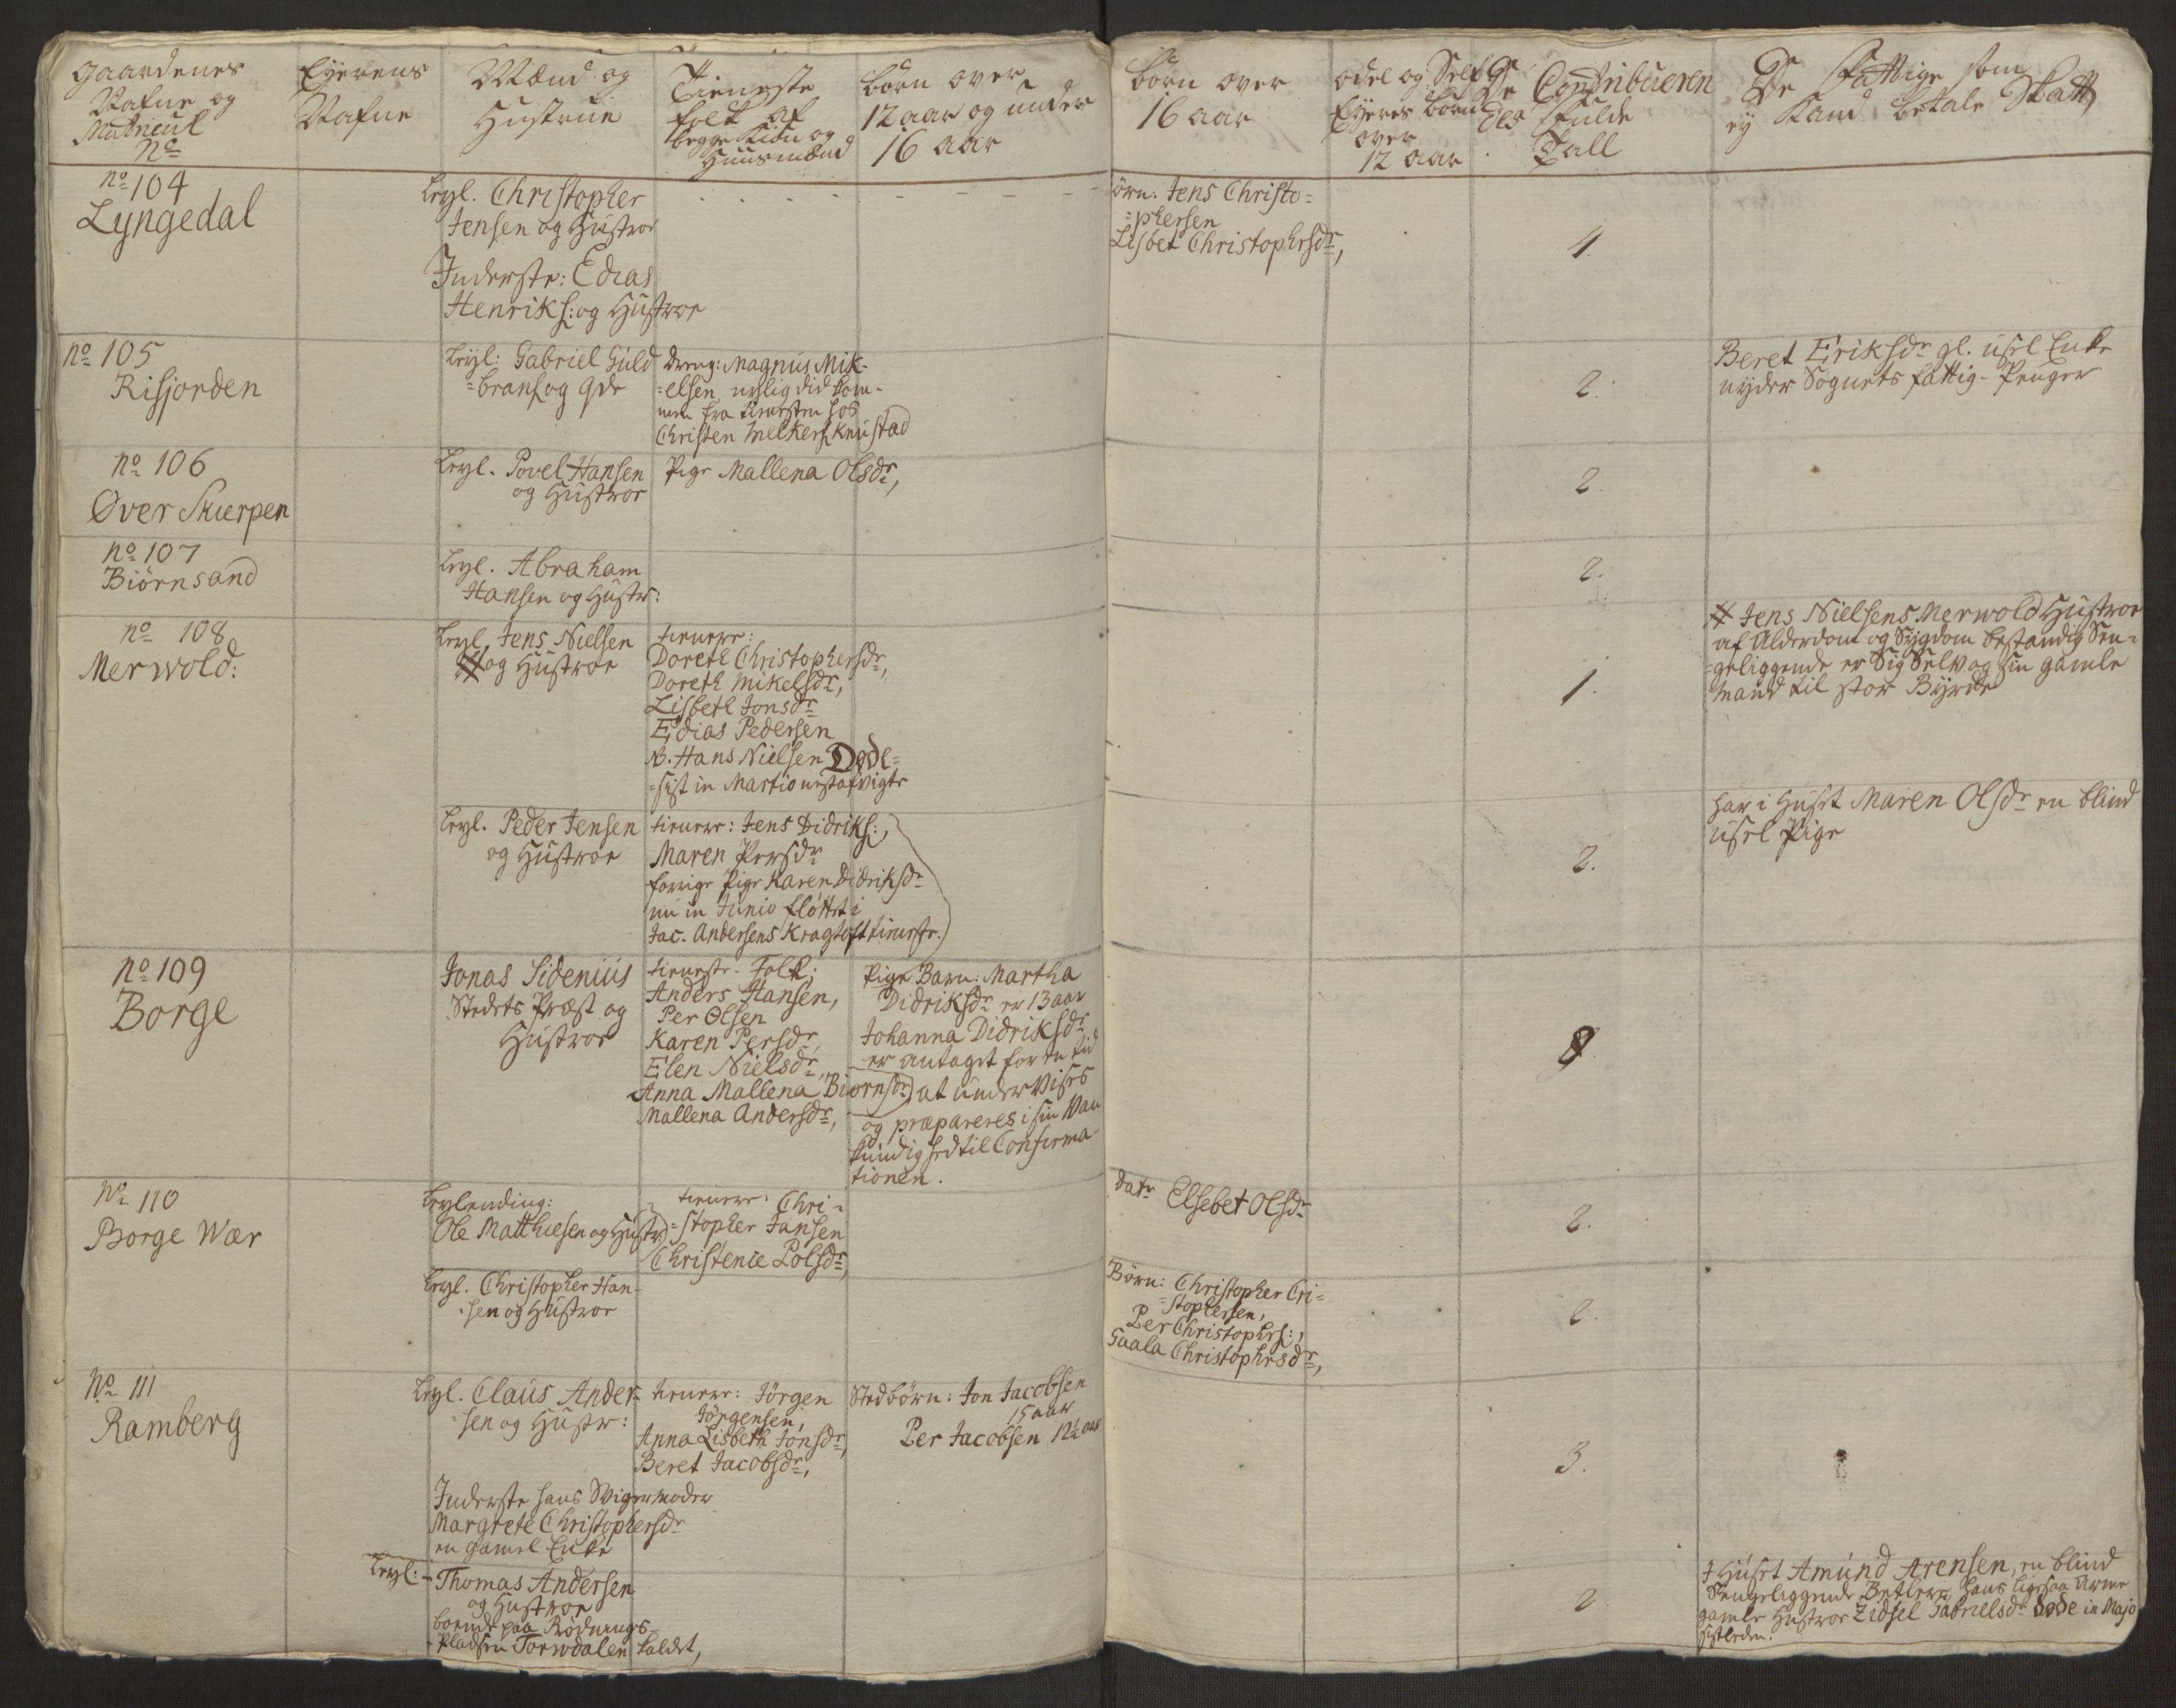 Gaardenes
Nafne og
Matricul
No
Eyerens
Nafne
Mænd og
Hustrue
Tieneste
folk af
begge Kiøn og
Huusmænd
børn over
12 aar og under
16 aar
børn over
16 aar
odel og Self
Eyeres børn
over
12 aar
De Contribueren
des fulde
Tall
De Fattige som
ey Kand betale Skatt
no 104
Lyngedal
Leyl. Christopher
Jensen og Hustroe
Inderste: Edias
Henriks: og Hustroe
børn: Jens Christo=
=phersen
Lisbet Christophersdr,
4.
no 105
Risjorden
Leyl: Gabriel Guld
=brans. og Qde
Dreng: Magnus Mik-
=elsen, nylig did kom-
men fra tienesten hos
Christen Melkers. Knustad
2.
Beret Eriksdr gl. usel Enke
nyder Sognets fattig-Penger
no 106
Øver Skierpen
Leyl. Povel Hansen
og Hustroe
Pige Mallena Olsdr,
2.
no 107
Biörnsand
Leyl. Abraham
Hansen og Hustr:
2.
no 108
Merwold:
Leyl. Jens Nielsen
# og Hustroe
tienere:
Doreth Christophersdr,
Doreth Mikelsdr,
Lisbeth Jonsdr
Edias Pedersen
N. Hans Nielsen Døde=
=sist in Martio nest afvigte
1.
# Jens Nielsens Merwold Hustroe
af Alderdom og Sygdom bestandig Sen=
=geliggende er Sig Selv og sin gamle
Mand til stor Byrde
Leyl. Peder Jensen
og Hustroe
tienere: Jens Didriks:,
Maren Persdr
forrige Pige Karen Didriksdr
nu in Junio fløttet i
Jac. Andersens Kragtoft tieneste.
2.
har i Huset Maren Olsdr en blind
usel Pige
no 109
Borge
Jonas Sidenius
Stedets Præst og
Hustroe
tieneste-Folk:
Anders Hansen,
Per Olsen
Karen Persdr,
Elen Nielsdr,
Anna Mallena Biörnsdr,
Mallena Andersdr,
Pige Barn: Martha
Didriksdr er 13 aar
Johanna Didriksdr
er antaget for en tid
at underVises
og præpareres i sin Van
kundighed til Confirma-
tionen.
8.
No 110
Borge Wær
Leylending:
Ole Matthiesen og Hustr:
tienere: Chri=
=stopher Jansen
Christenie Polsdr,
datr Elsebet Olsdr
2.
Leyl. Christopher Han-
-sen og Hustroe
Børn: Christopher Cri=
=stophersen,
Per Christophrs:,
Gaala Christophrsdr,
2.
No 111
Ramberg
Leyl. Claus Ander-
sen og Hustr:
tienere: Jörgen
Jörgensen,
Anna Lisbeth Jonsdr,
Beret Jacobsdr,
Stedbörn: Jon Jacobsen
15 aar
Per Jacobsen 12½ aar
3.
Inderste hans Svigermoder
Margrete Christophersdr
en gamel Enke
Leyl:- Thomas Andersen
og Hustroe
boende paa Rødnings-
Pladsen Torwdalen kaldet,
2.
I Huset Amund Arensen, en blind
Sengeliggende Betler, hans ligesaa Arme
gamle Hustroe Zidsel Gabrielsdr døde in Majo
sistleden.